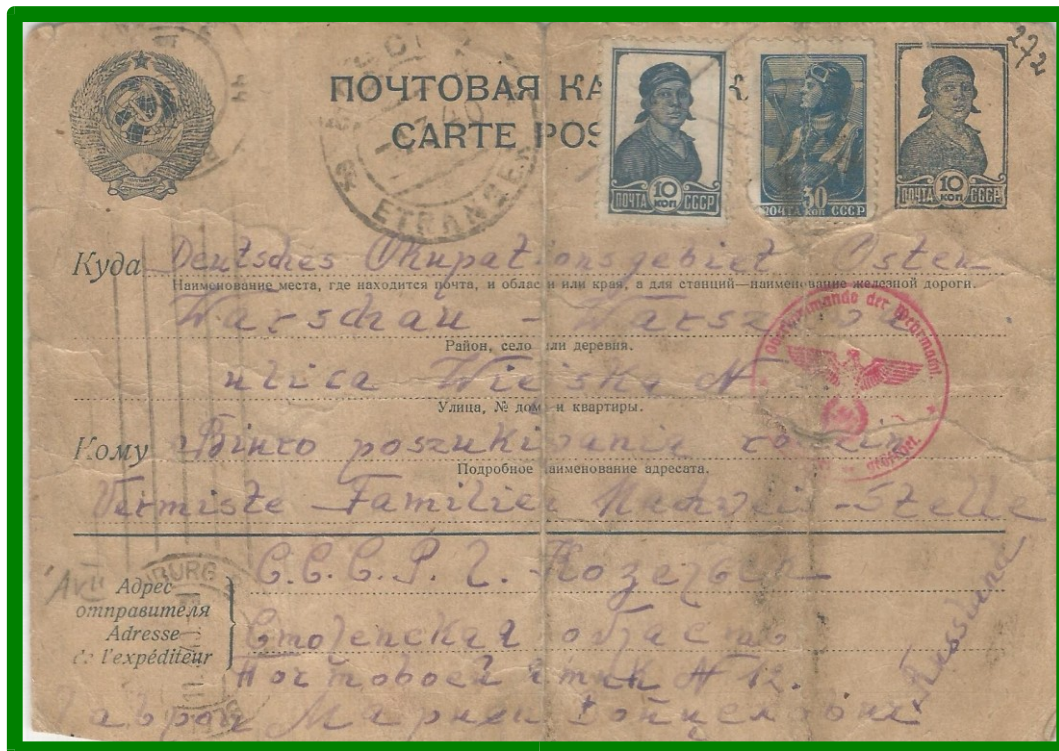 272
ПОЧТОВАЯ КА
CARTE POS
10 КОП
ПОЧТА СССР
30
ПОЧТА КОП СССР
10 КОП
ПОЧТА СССР
ETRANGER
Куда Deutsches Okupationsgebiet Osten
Наименование места, где находится почта, и области или края, а для станций—наименование железной дороги.
Warschau - Warszawa
Район, село или деревня.
ulica Wiejska N
Улица, № дома и квартиры.
Oberkommando der Wehrmacht
geprüft
Кому Biuro poszukiwania rodzin
Подробное наименование адресата.
Vermiste - Familien Nachweis - Stelle
С.С.С.Р. г. Козельск
Адрес отправителя
Adresse de l'expéditeur
Смоленская область
Почтовой ящик № 12.
Russland